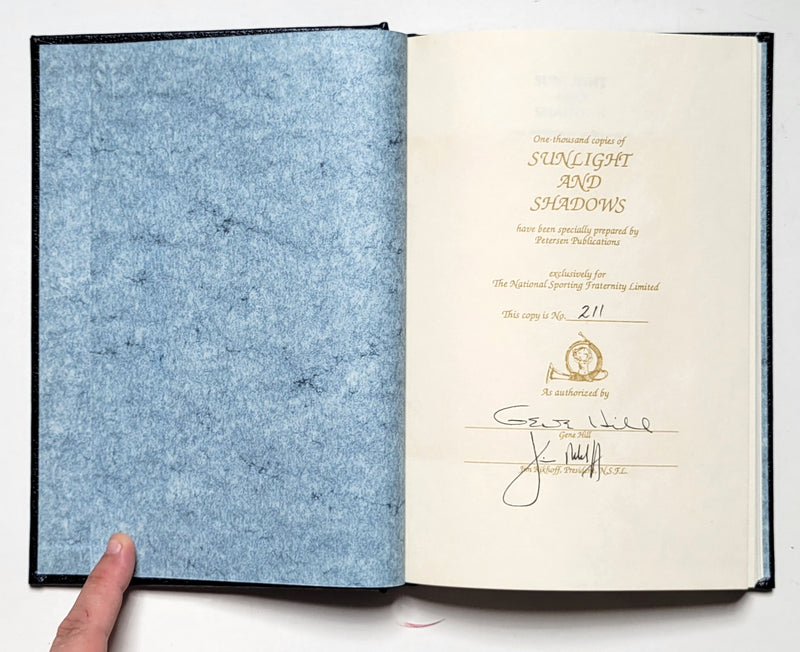 One-thousand copies of
SUNLIGHT
AND
SHADOWS
have been specially prepared by
Petersen Publications
exclusively for
The National Sporting Fraternity Limited
This copy is No. 211
As authorized by
Gene Hill
Gene Hill
Jim Rikhoff
Jim Rikhoff, President, N.S.F.L.